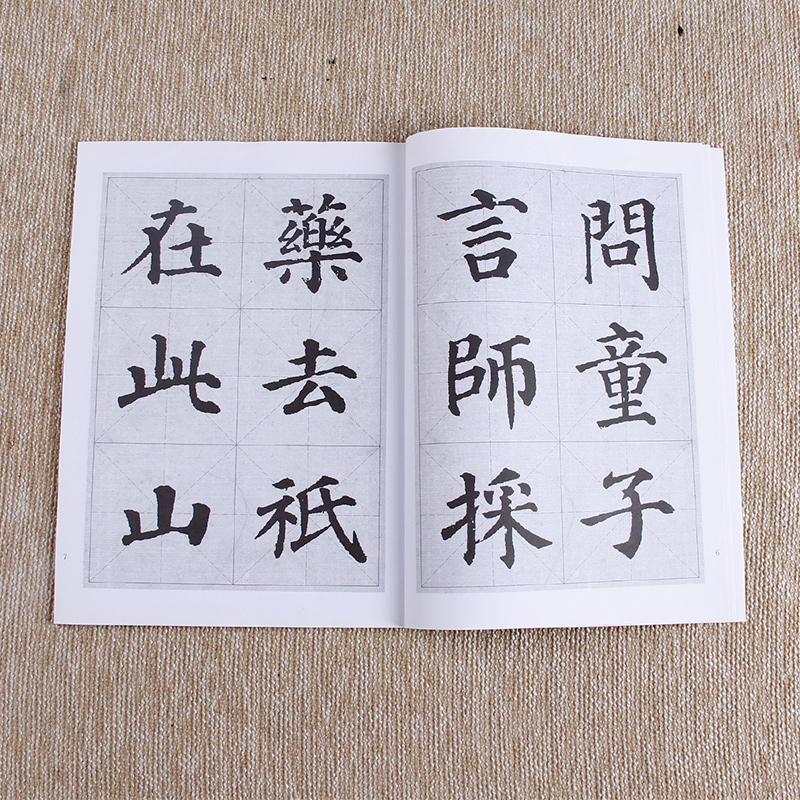 問童子
言師採
藥去祇
在此山
6
7